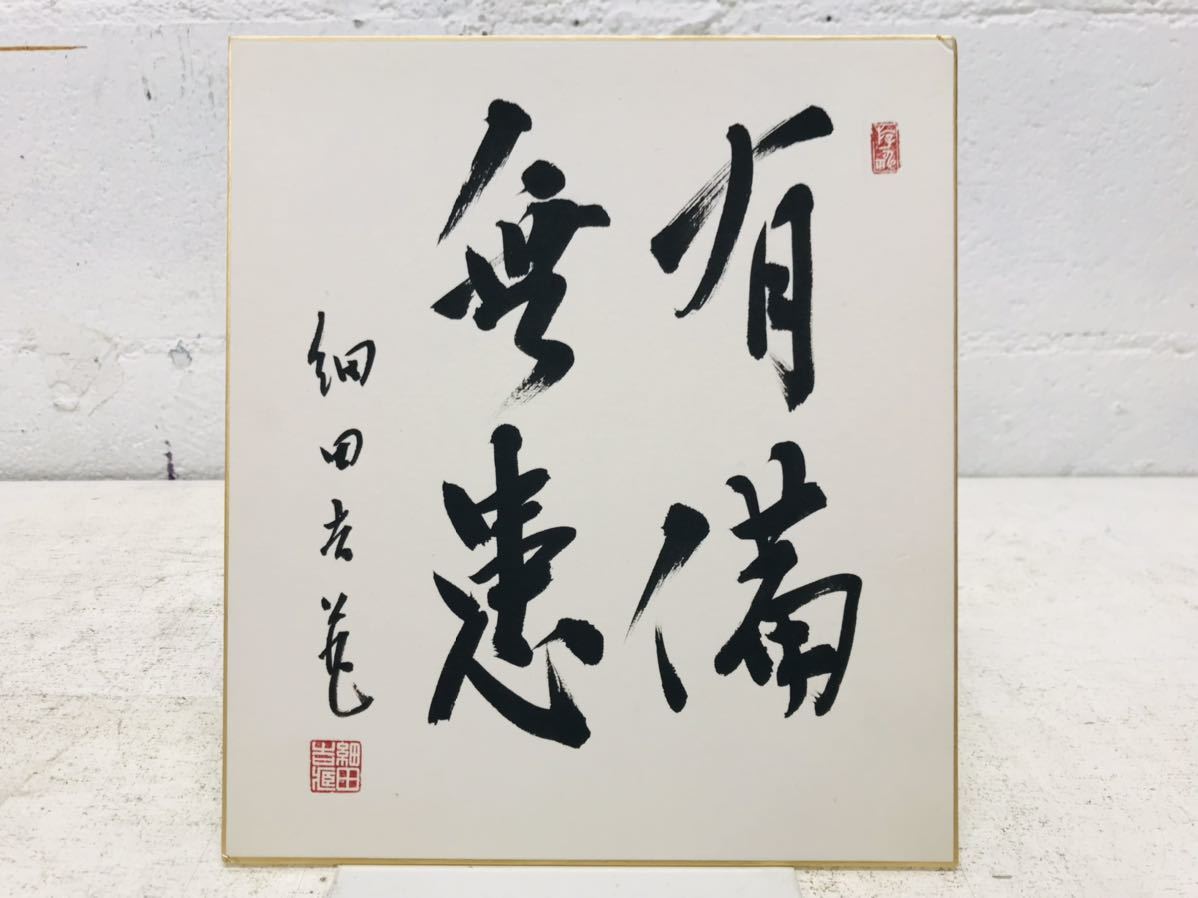 有備
無患
細田吉蔵
細田吉蔵